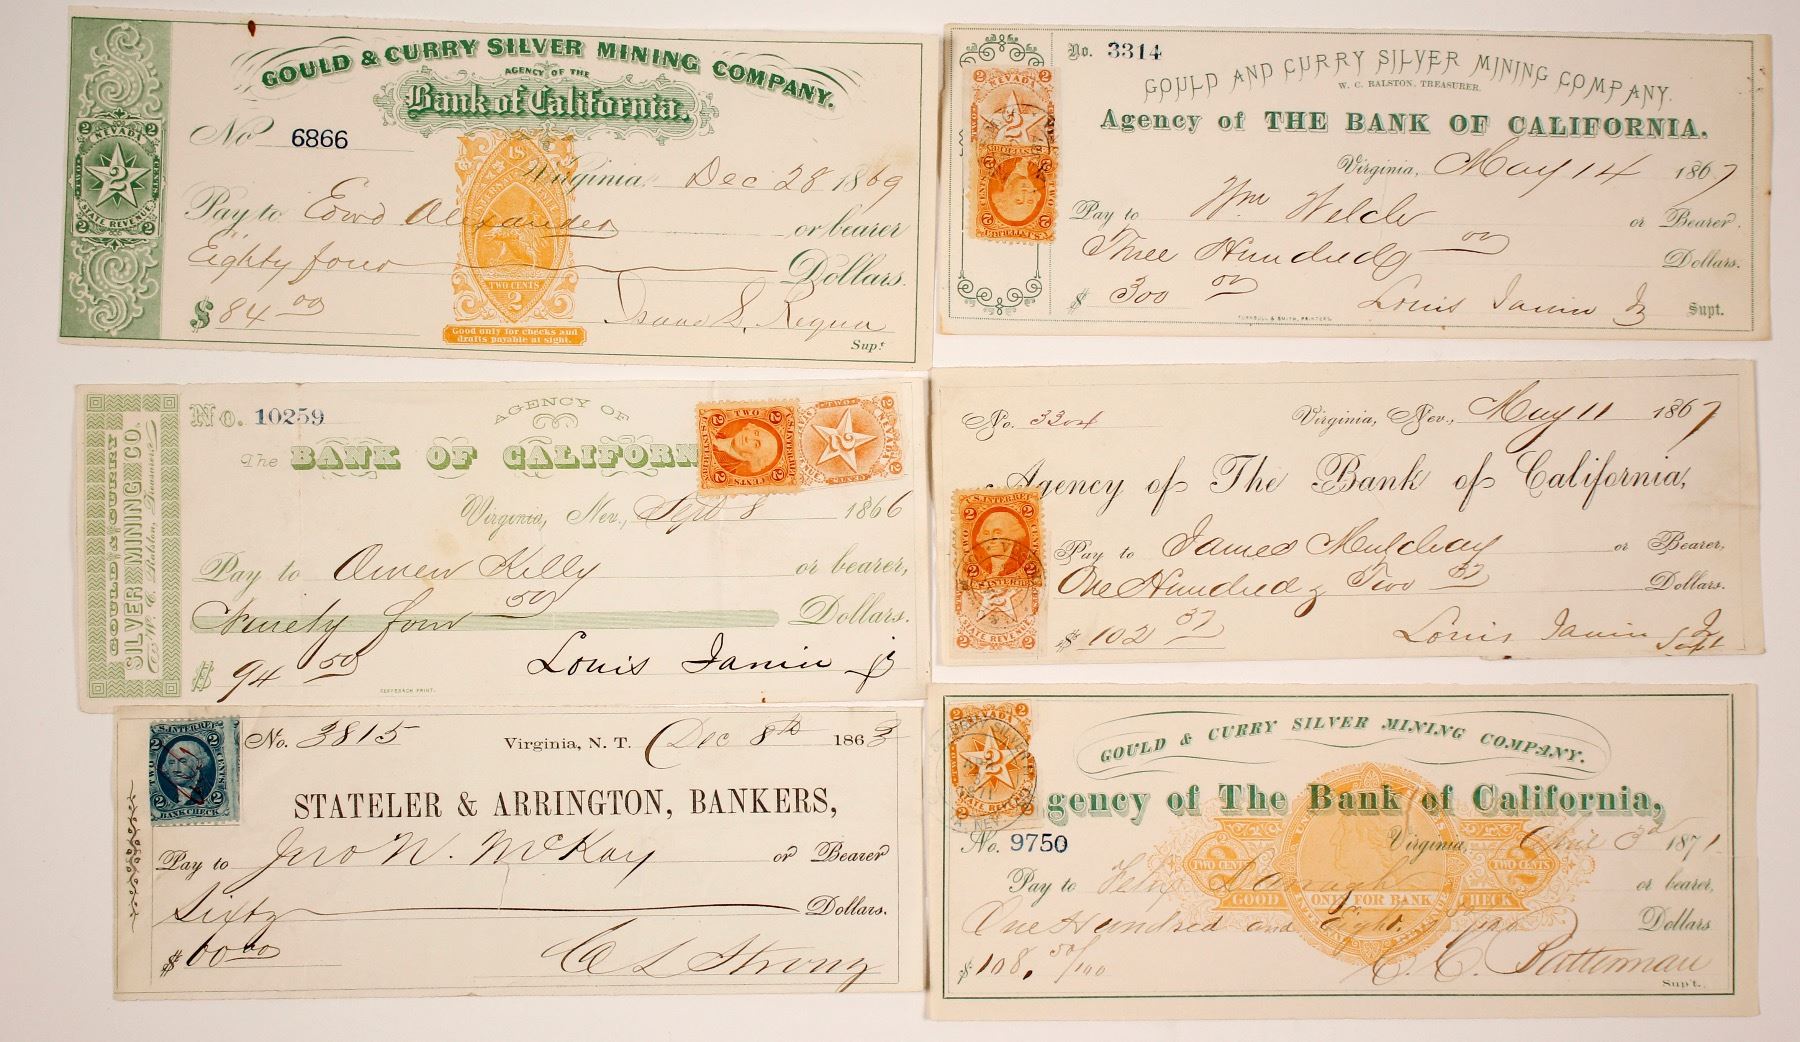 GOULD & CURRY SILVER MINING COMPANY.
AGENCY OF THE
Bank of California.
No 6866
2 NEVADA 2
TWO CENTS
2
STATE REVENUE
2 2
Virginia, Dec 28 1869
Pay to Edwd Alexander or bearer
Eighty four Dollars.
$ 84.00
TWO CENTS
2
Good only for checks and
drafts payable at sight.
Isaac L. Requa
Supt
No. 3314
GOULD AND CURRY SILVER MINING COMPANY.
W. C. RALSTON, TREASURER.
Agency of THE BANK OF CALIFORNIA.
Virginia, May 14 1867
Pay to Wm Welch or Bearer.
Three Hundred 00 Dollars.
$ 300 00
Louis Janin Jr Supt.
TURNBULL & SMITH, PRINTERS.
2 NEVADA 2
GOULD & CURRY
SILVER MINING CO.
W. C. Ralston, Treasurer
No. 10259
AGENCY OF
The BANK OF CALIFORN
Virginia, Nev., Sept 8 1866
Pay to Owen Kelly or bearer,
Ninety four 50 Dollars.
$ 94 50
Louis Janin Jr
No. 3304
Virginia, Nev., May 11 1867
Agency of The Bank of California,
Pay to James Mulcahay or Bearer,
One Hundred & Two 37 Dollars.
$ 102 37
Louis Janin Jr
Supt
U.S. INTER. REV.
TWO CENTS
STATE REVENUE
No. 3815
Virginia, N. T. Dec 8th 1863
STATELER & ARRINGTON, BANKERS,
Pay to Jno W. McKay or Bearer
Sixty Dollars.
$ 60.00
C L Strong
U.S. INTER. REV.
2 2
TWO CENTS
2 2
BANK CHECK
GOULD & CURRY SILVER MINING COMPANY.
gency of The Bank of California,
No. 9750
Virginia, April 3d 1871
Pay to Darragh or bearer,
One Hundred and Eight Dollars
$ 108. 50/100
TWO CENTS 2 TWO CENTS
GOOD ONLY FOR BANK CHECK
C. C. Batterman
Supt.
2 NEVADA 2
STATE REVENUE